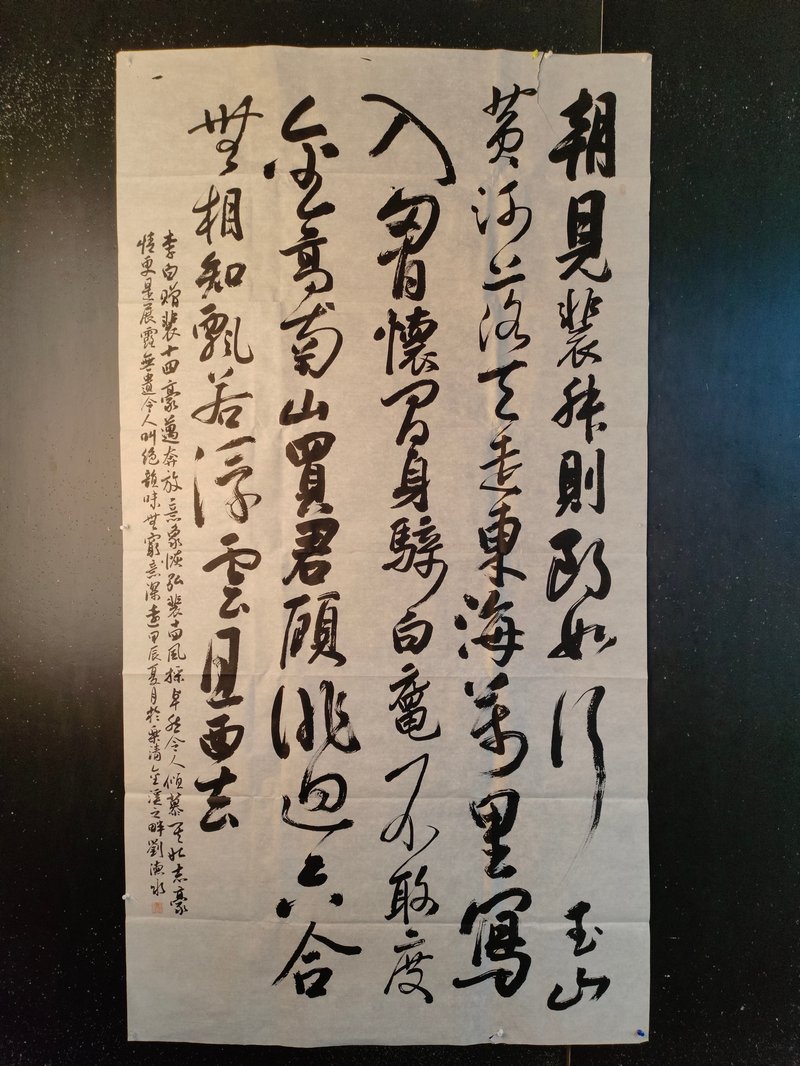 朝見裴叔則朗如行玉山
黄河落天走東海萬里寫
入胷懷間身騎白黿不敢度
金高南山買君顧徘迴六合
無相知飄若浮雲且西去
李白贈裴十四豪邁奔放意象恢弘裴十四風採卓然令人傾慕其壯志豪
情更是展露無遺令人叫絕韻味無窮意深遠甲辰夏月於樂清金溪之畔劉水